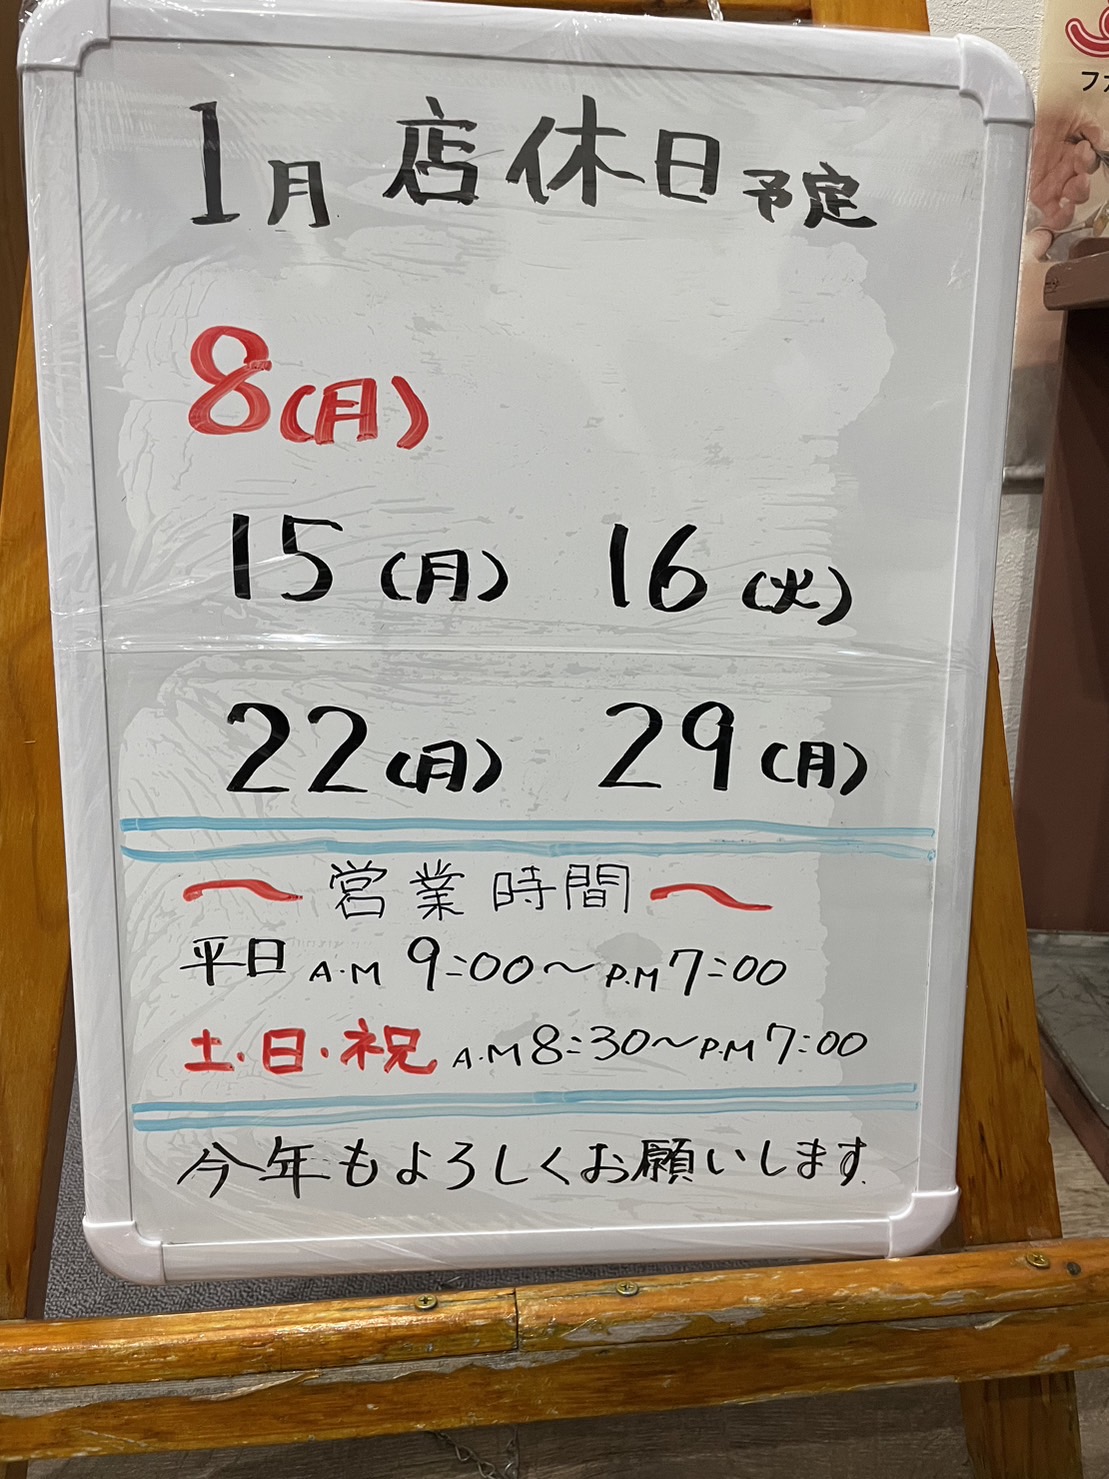 1月 店休日予定
8(月)
15(月) 16(火)
22(月) 29(月)
〜営業時間〜
平日 A.M 9:00〜P.M 7:00
土・日・祝 A.M 8:30〜P.M 7:00
今年もよろしくお願いします.